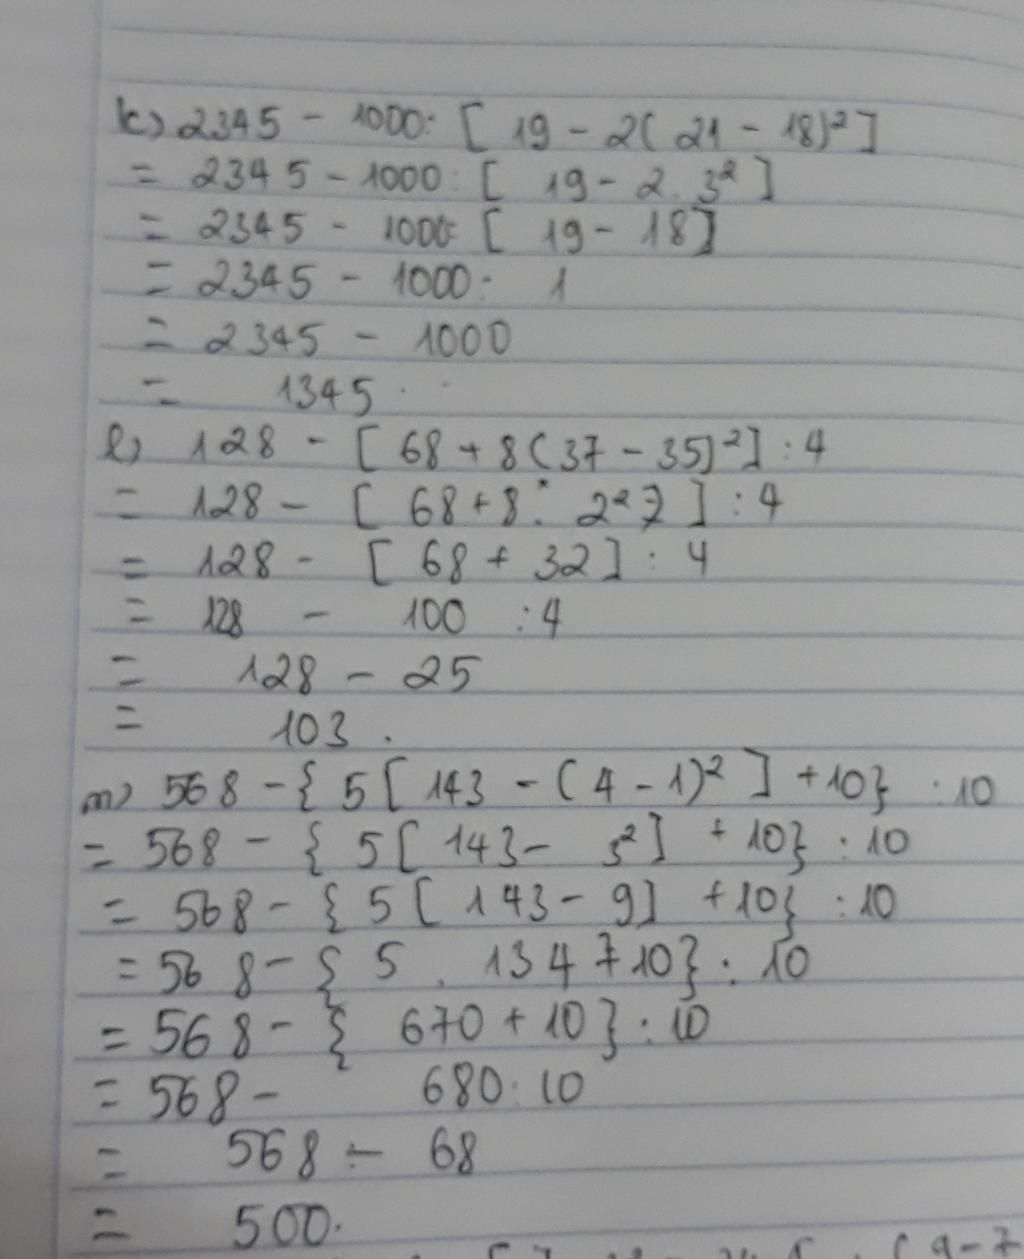 k) 2345 - 1000: [ 19 - 2( 21 - 18)²]
= 2345 - 1000: [ 19 - 2. 3² ]
= 2345 - 1000: [ 19 - 18]
= 2345 - 1000: 1
= 2345 - 1000
= 1345.
l) 128 - [ 68 + 8(37 - 35)²] : 4
= 128 - [ 68 + 8. 2² ] : 4
= 128 - [ 68 + 32] : 4
= 128 - 100 : 4
= 128 - 25
= 103.
m) 568 - { 5 [ 143 - (4 - 1)² ] + 10} : 10
= 568 - { 5 [ 143 - 3² ] + 10} : 10
= 568 - { 5 [ 143 - 9] + 10} : 10
= 568 - { 5 . 134 + 10} : 10
= 568 - { 670 + 10 } : 10
= 568 - 680: 10
= 568 - 68
= 500.